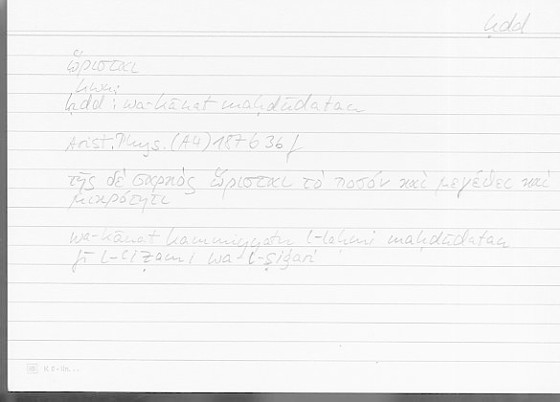 ḥdd
ὥρισται
kwn;
ḥdd: wa-kānat maḥdūdatan
Arist. Phys. (A4) 187b36f
τῆς δὲ σαρκὸς ὥρισται τὸ ποσὸν καὶ μεγέθει καὶ
μικρότητι
wa-kānat kammiyyatu l-laḥmi maḥdūdatan
fī l-ʿiẓami wa-l-ṣiġari